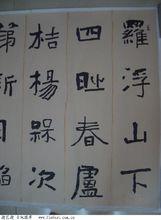 羅浮山下
四時春盧
桔楊槑次
第新日啗